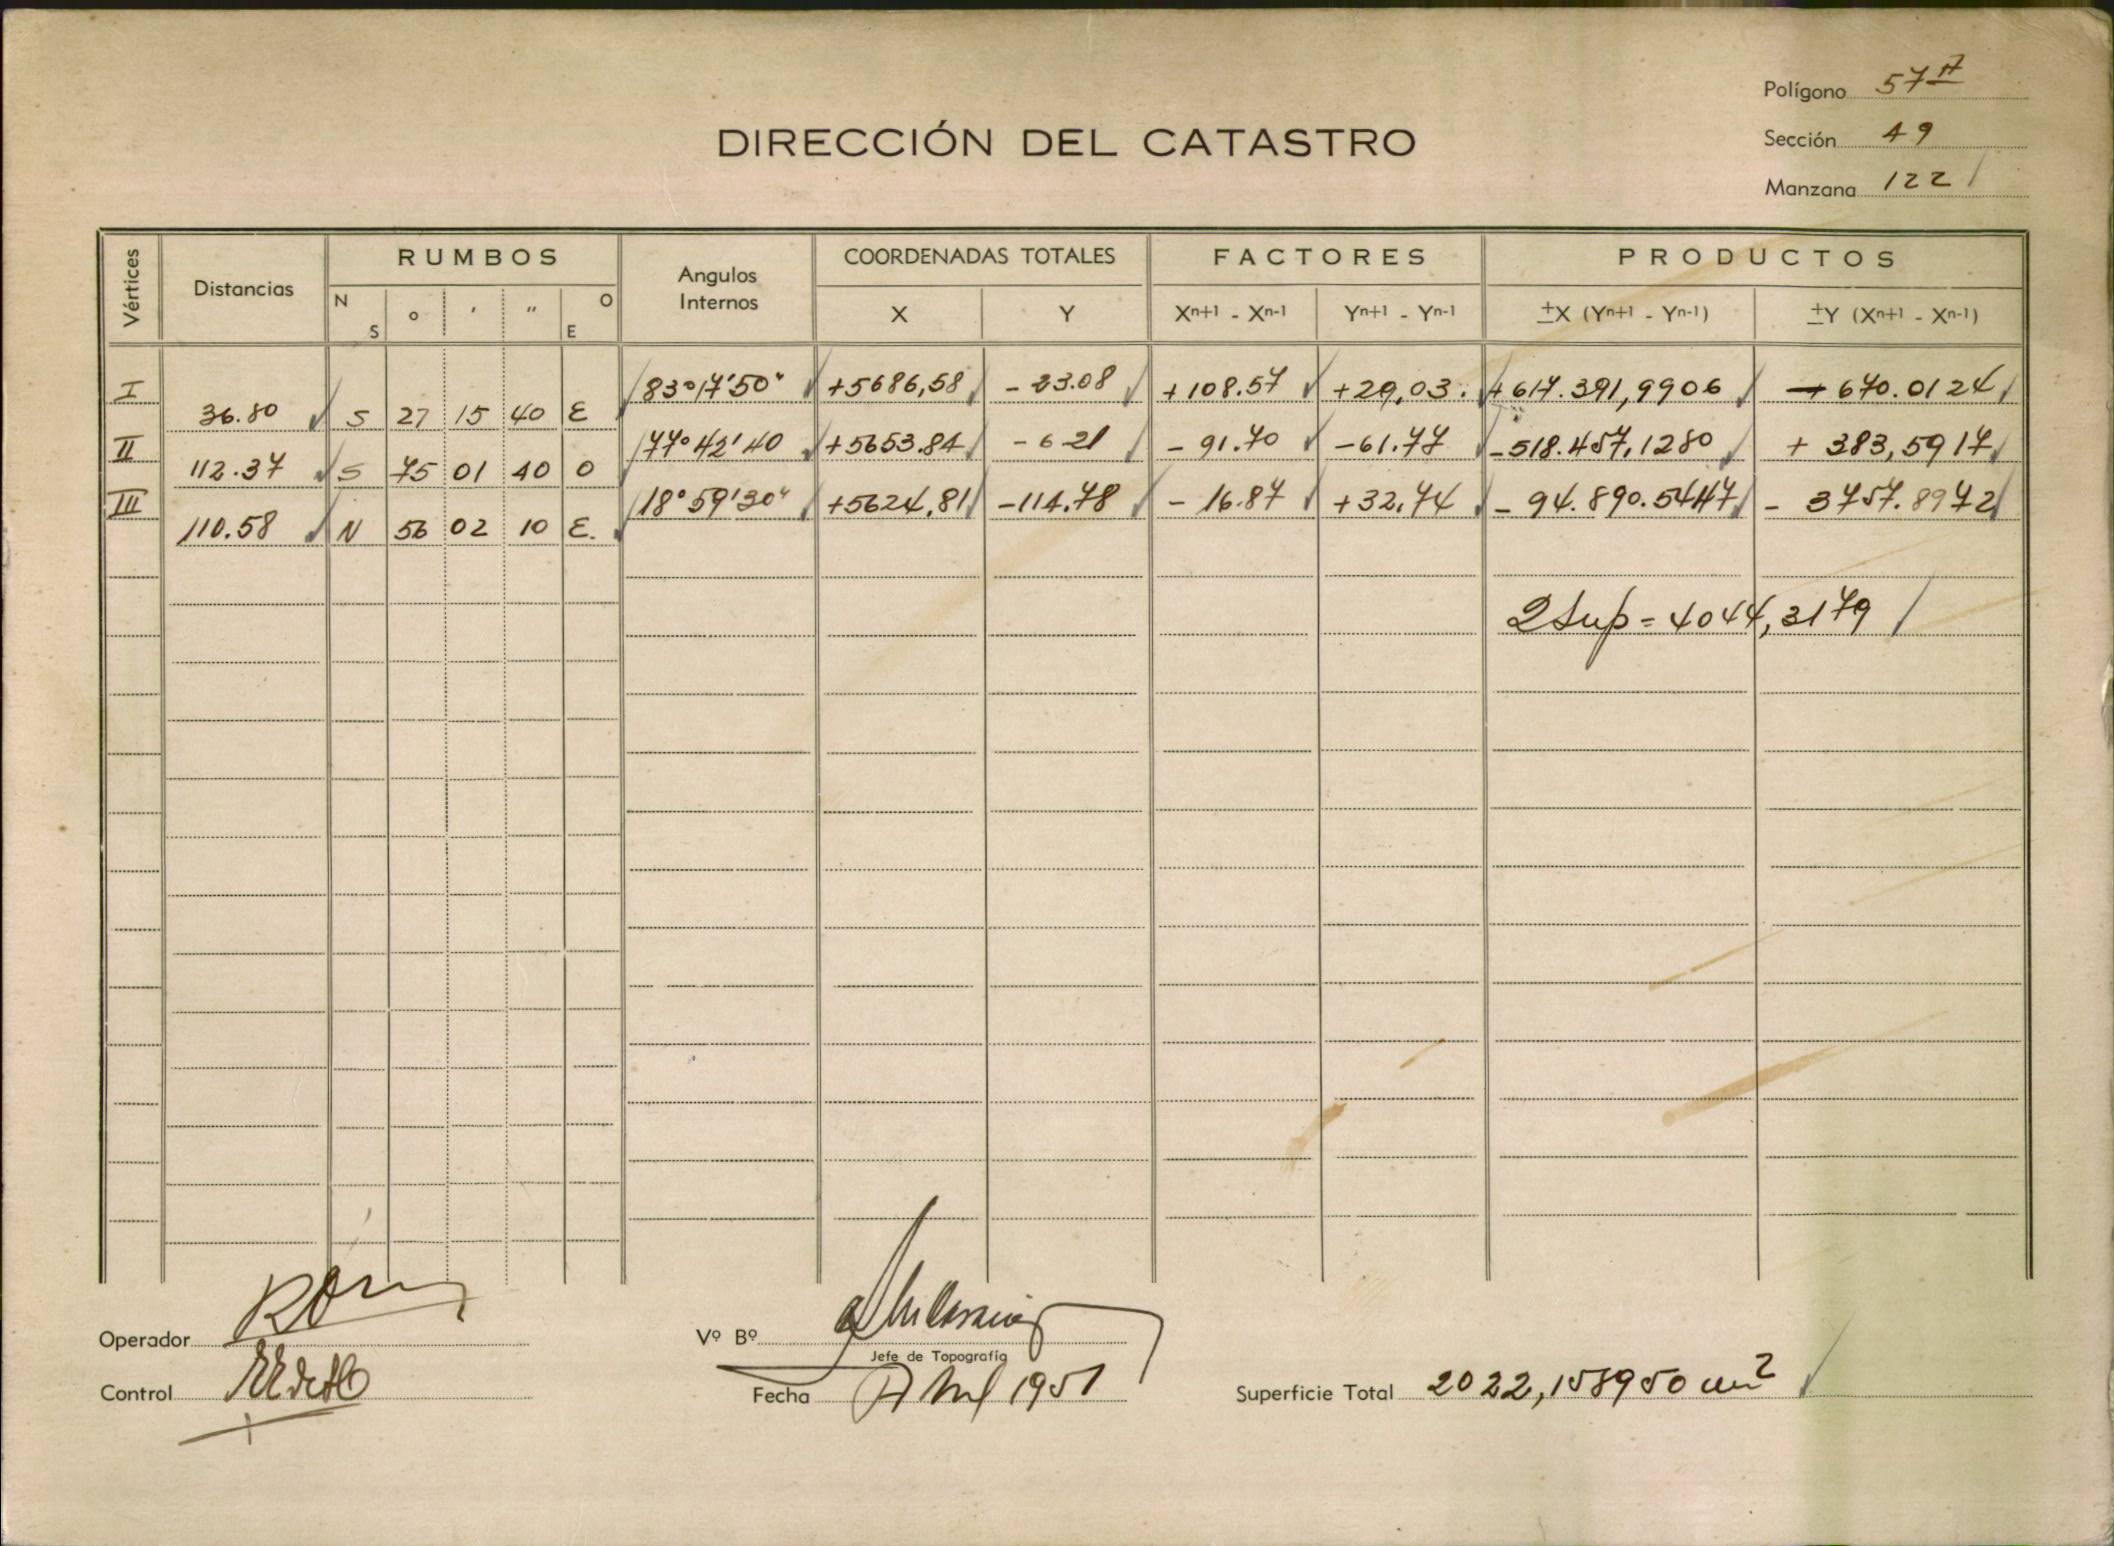 Polígono 57A
DIRECCIÓN DEL CATASTRO
Sección 49
Manzana 122
Vértices
Distancias
RUMBOS
N S
o ' "
O E
Angulos Internos
COORDENADAS TOTALES
X Y
FACTORES
Xn+1 - Xn-1 Yn+1 - Yn-1
PRODUCTOS
±X (Yn+1 - Yn-1) ±Y (Xn+1 - Xn-1)
I 83°17'50" +5686,58 - 23.08 +108.57 +29,03. +617.391,9906 - 670.0124
36.80 S 27 15 40 E
II 77°42'40 +5653.84 - 6 21 - 91.70 -61.77 -518.457,1280 + 383,5917
112.37 S 75 01 40 O
III 18°59'30" +5624,81 -114.78 - 16.87 +32,74 - 94.890.5447 - 3757.8972
110.58 N 56 02 10 E.
2Sup = 4044,3179
Operador
Vº Bº
Jefe de Topografía
Control
Fecha Abril 1951
Superficie Total 2022,158950 m2